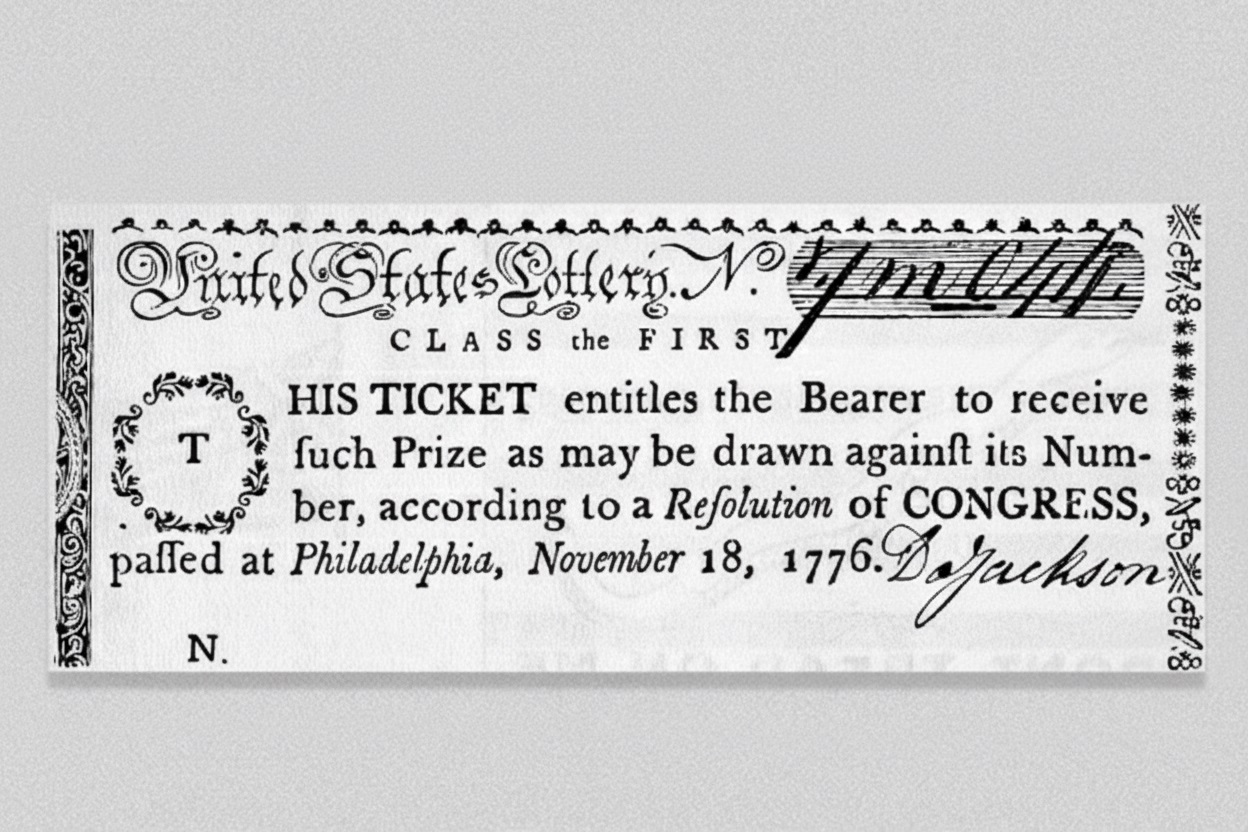 United States Lottery. No.
CLASS the FIRST
T
HIS TICKET entitles the Bearer to receive
ſuch Prize as may be drawn againſt its Num-
ber, according to a Reſolution of CONGRESS,
paſſed at Philadelphia, November 18, 1776. D. Jackson
N.